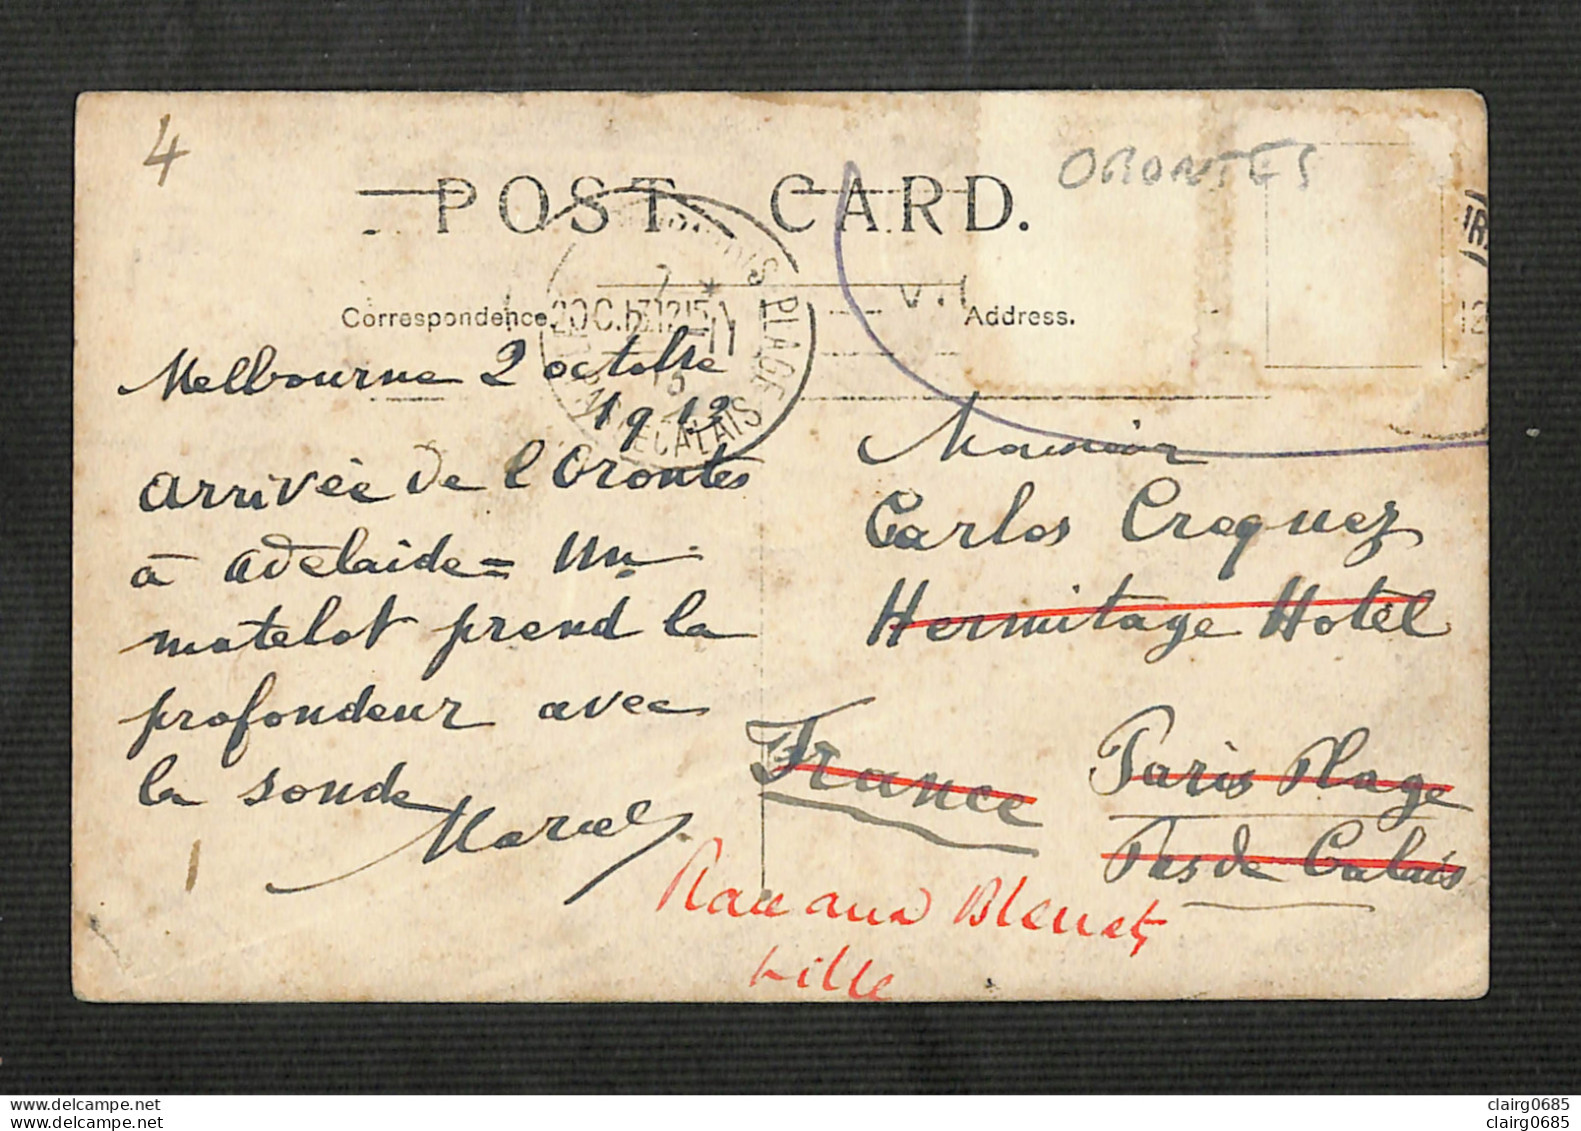 4
ORONTES
POST CARD.
Correspondence
Address.
2 OC.13.12 15
PARIS-PLAGE
PAS DE CALAIS
Melbourne 2 octobre
1913
arrivée de l'Orontes
à adelaide = Un
matelot prend la
profondeur avec
la sonde
Marcel
Monsieur
Carlos Crequez
Hermitage Hotel
Paris Plage
Pas de Calais
France
Rue aux Bleuets
Lille
delcampe.net
clairg0685
delcampe.net
clairg0685